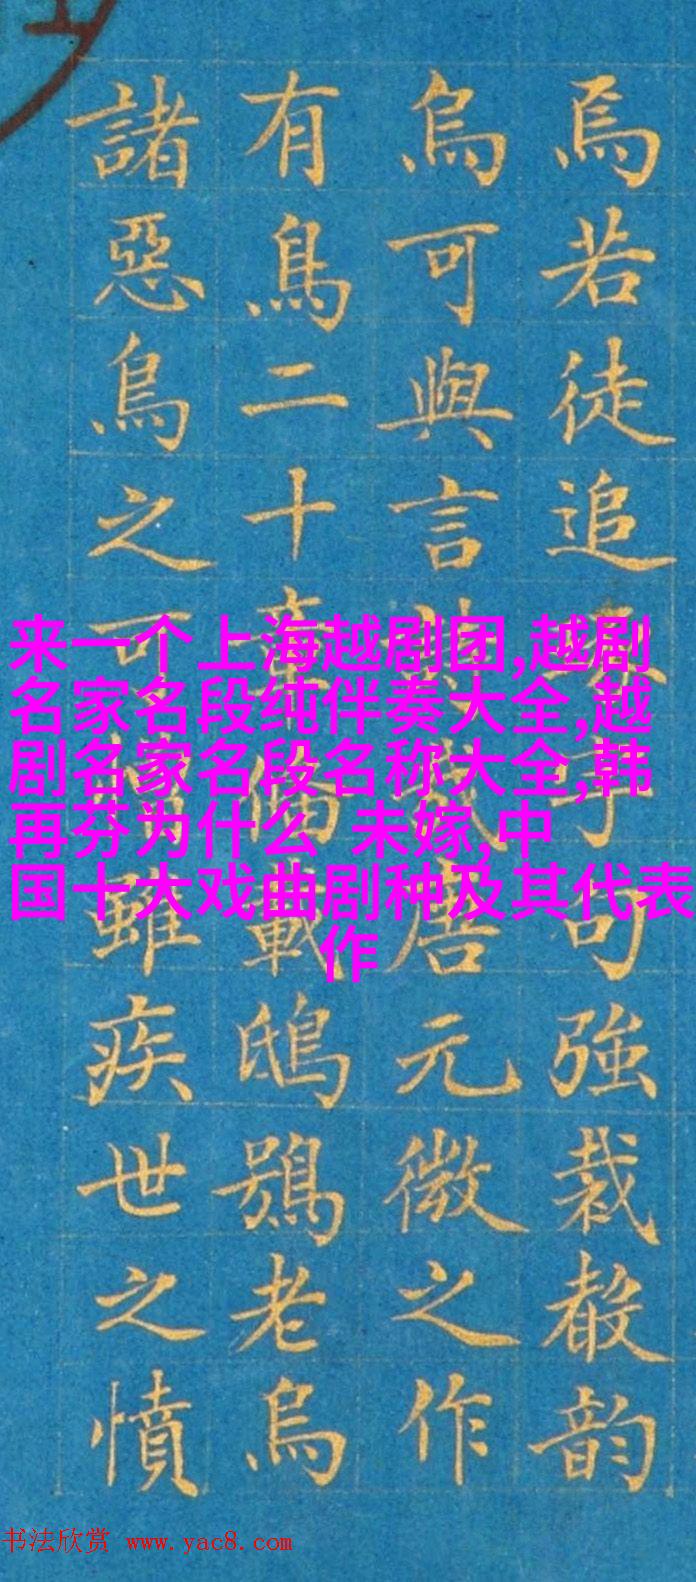 焉若徒追句強裁散韵
烏可與言哉唐元微之作
有鳥二十章備載鴟鴞老烏
諸惡鳥之可雖疾世之憤
来一个上海越剧团,越剧
名家名段纯伴奏大全,越
剧名家名段名称大全,韩
再芬为什么 未嫁,中
国十大戏曲剧种及其代表
作
书法欣赏 www.yac8.com